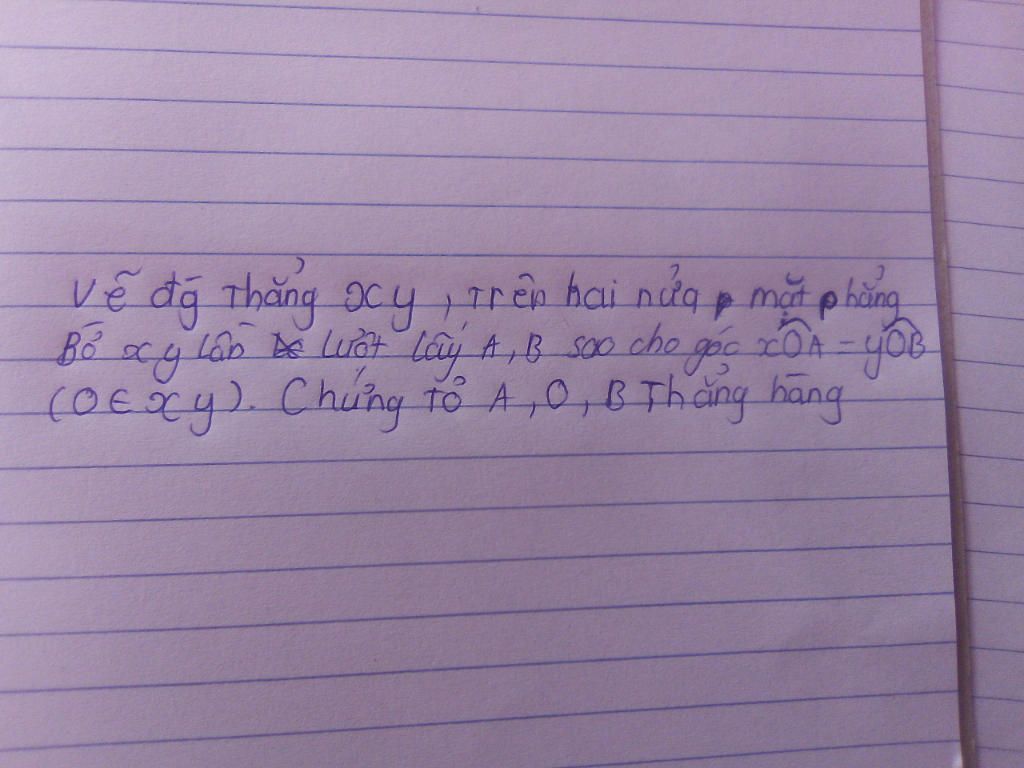 Vẽ đg̃ thẳng xy, trên hai nửa mặt phẳng
Bờ xy lần lượt lấy A, B sao cho góc xÔA = yÔB
(O ∈ xy). Chứng tỏ A, O, B Thẳng hàng